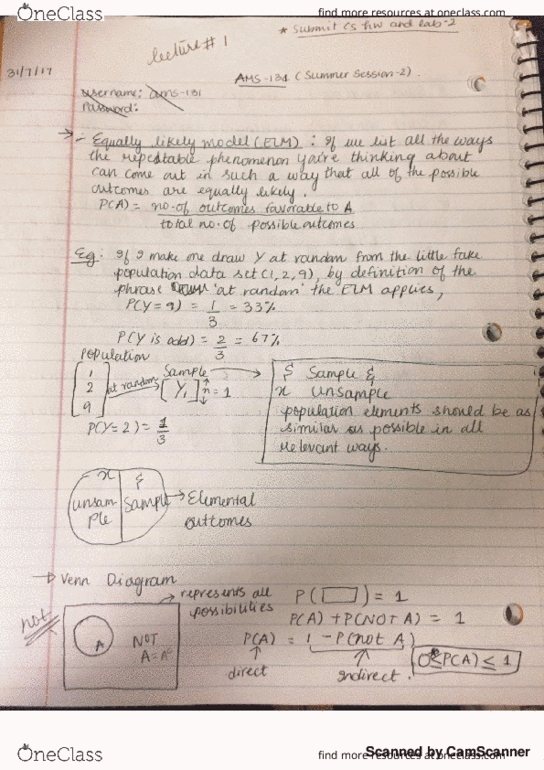 OneClass
find more resources at oneclass.com
* Submit CS hw and lab-2
lecture # 1
31/7/17
AMS-131 (Summer Session-2).
username: ams-131
Password:
→ - Equally likely model (ELM) : If we list all the ways
the repeatable phenomenon you're thinking about
can come out in such a way that all of the possible
outcomes are equally likely.
P(A) = no. of outcomes favorable to A
total no. of possible outcomes
Eg: If I make one draw Y at random from the little fake
population data set (1, 2, 9), by definition of the
phrase 'at random' the ELM applies,
P(Y = 9) = 1/3 = 33%
P(Y is odd) = 2/3 = 67%
Population
1
2
9
at random
Sample
[Y₁] n = 1
P(Y=2) = 1/3
Sample &
unsample
population elements should be as
similar as possible in all
relevant ways.
unsam
ple
Sample → Elemental
outcomes
→ Venn Diagram
→ represents all
possibilities
not
A
NOT
A = Aᶜ
P(▭) = 1
P(A) + P(NOT A) = 1
P(A) = 1 - P(not A)
↑
direct
↑
Indirect.
0 ≤ P(A) ≤ 1
OneClass
find more resources at oneclass.com
Scanned by CamScanner